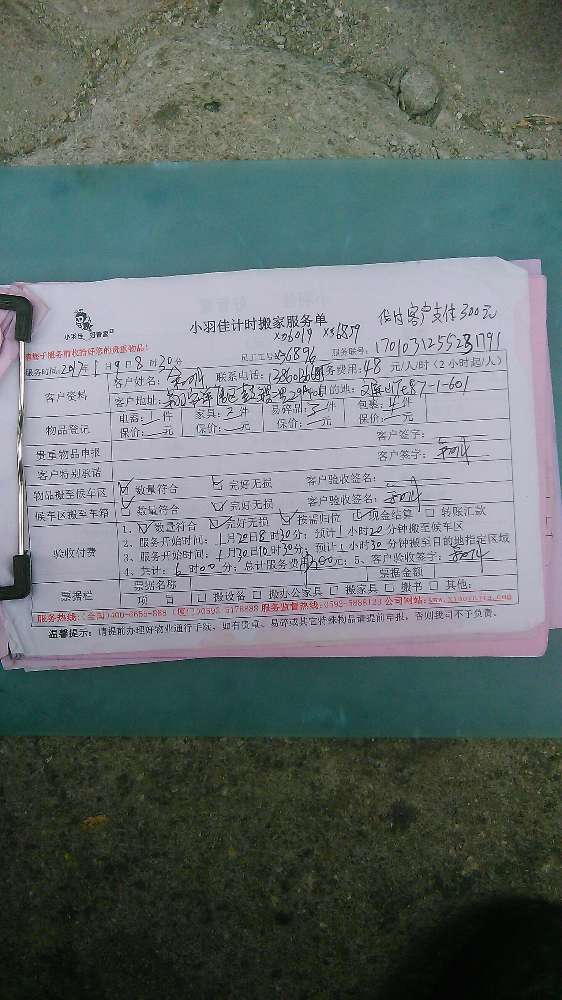 小羽佳 好管家
小羽佳计时搬家服务单
代付客户支付300元
X36019 X36859
X36896
服务前收拾好您的贵重物品！
员工工号
服务账号: 17010312552831791
服务时间: 2017年1月9日8时30分
客户资料
客户姓名: 联系电话: 服务费用: 48 元/人/时 (2小时起/人)
客户地址: 目的地: 87-1-601
物品登记
电器: 1 件 家具: 2 件 易碎品: 5 件 包装: 4 件
保价: 元 保价: 元 保价: 元 保价: 元
贵重物品申报 客户签字:
客户特别承诺 客户签字:
物品搬至候车区 ☑ 数量符合 ☑ 完好无损 客户验收签名:
候车区搬至车箱 ☑ 数量符合 ☑ 完好无损 客户验收签名:
验收付费
1、☑ 数量符合 ☑ 完好无损 ☑ 按需归位 ☑ 现金结算 □ 转账汇款
2、服务开始时间: 1月20日8时30分; 预计1小时20分钟搬至候车区
3、服务开始时间: 1月30日10时30分; 预计1小时30分钟搬至目的地指定区域
4、共计: 6时00分; 总计服务费用 300 元; 5、客户验收签字:
票据栏
票据名称 票据金额
项 目 □ 搬设备 □ 搬办公家具 □ 搬家具 □ 搬书 □ 其他:
服务热线: (全国)400-6656-888 (厦门)0592-5178888 服务监督热线: 0592-5888123 公司网站: www.xiaoyujia.com
温馨提示: 请提前办理好物业通行手续, 如有贵重、易碎或其它特殊物品请提前申报, 否则我司不予负责。